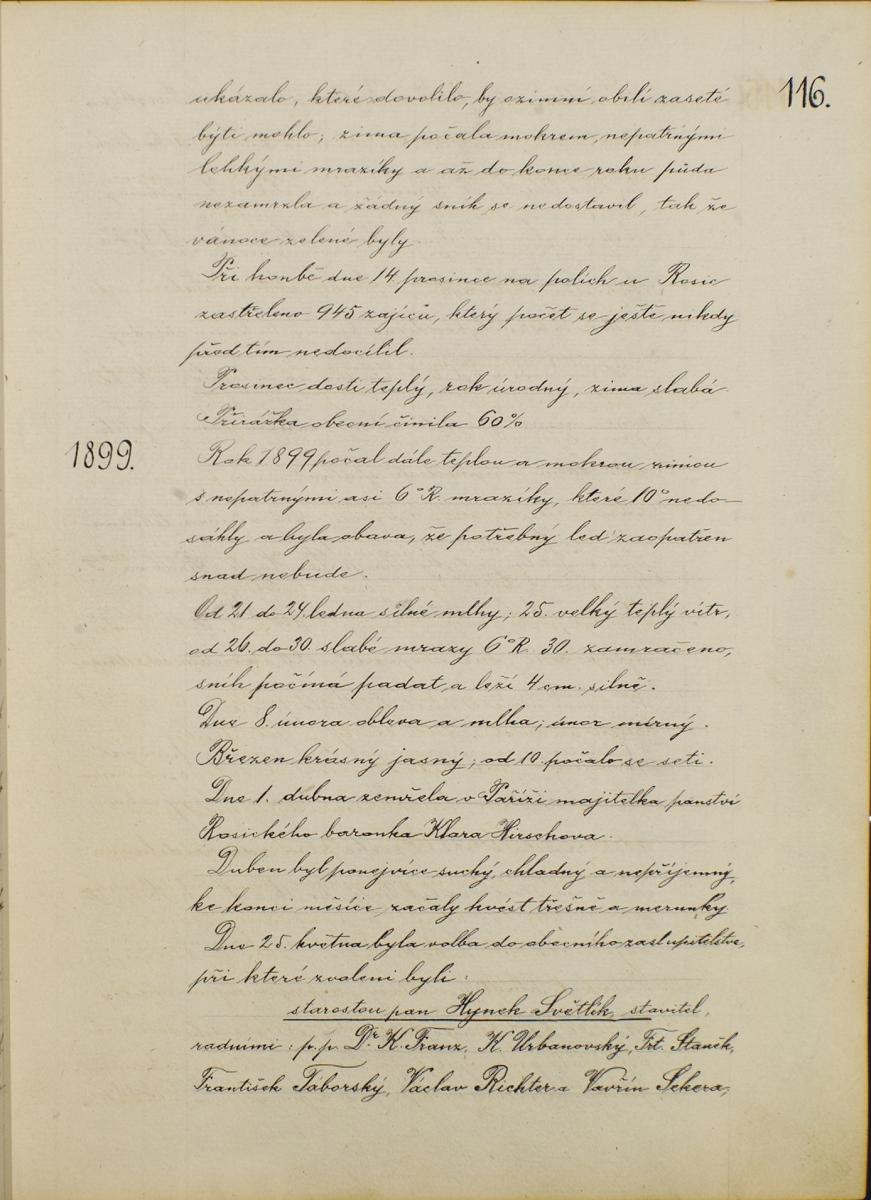 116.
ukázalo, které dovolilo, by ozimní obilí zaseté
býti mohlo; zima počala mokrem, nepatrnými
lehkými mrazíky a až do konce roku půda
nezamrzla a žádný sníh se nedostavil, tak že
vánoce zelené byly.
Při honbě dne 14. prosince na polích u Rosic
zastřeleno 945 zajíců, který počet se ještě nikdy
před tím nedocílil.
Prosinec dosti teplý, rok úrodný, zima slabá.
Přirážka obecní činila 60%
1899.
Rok 1899 počal dále teplou a mokrou zimou
s nepatrnými asi 6° R. mrazíky, které 10° nedo-
sáhly a byla obava, že potřebný led zaopatřen
snad nebude.
Od 21. do 24. ledna silné mlhy; 25. velký teplý vítr,
od 26. do 30. slabé mrazy 6°R. 30. zamračeno,
sníh počíná padat a leží 4 cm. silně.
Dne 8. února obleva a mlha; únor mírný.
Březen krásný jasný; od 10. počalo se seti.
Dne 1. dubna zemřela v Paříži majitelka panství
Rosického baronka Klara Hirschova.
Duben byl ponejvíce suchý, chladný a nepříjemný,
ke konci měsíce začaly kvést třešně a merunky
Dne 25. května byla volba do obecního zastupitelstva,
při které zvoleni byli:
starostou pan Hynek Světlík, stavitel,
radními: p.p. Dr. K. Franz, K. Urbanovský, Staněk,
František Táborský, Václav Richter a Vavřín Sekera,